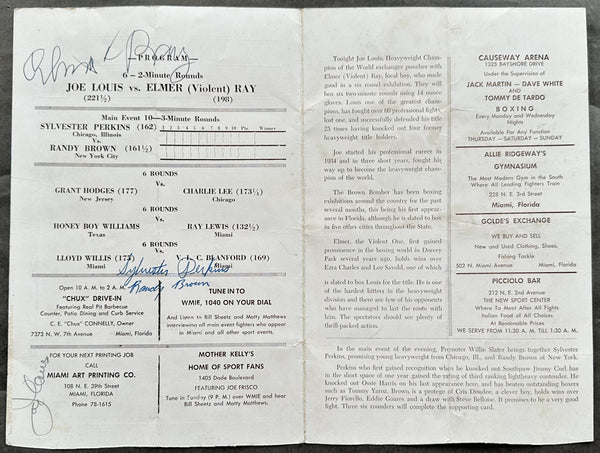 —PROGRAM—
6 – 2-Minute Rounds
JOE LOUIS vs. ELMER (Violent) RAY
(221½) (198)
Main Event 10—3-Minute Rounds
SYLVESTER PERKINS (162)
Chicago, Illinois
1 2 3 4 5 6 7 8 9 10 Pts. Winner
Vs.
RANDY BROWN (161½)
New York City
6 ROUNDS
Vs.
GRANT HODGES (177) CHARLIE LEE (173½)
New Jersey Chicago
6 ROUNDS
Vs.
HONEY BOY WILLIAMS RAY LEWIS (132½)
Texas Miami
6 ROUNDS
Vs.
LLOYD WILLIS (173) BLANFORD (169)
Miami Miami
Sylvester Perkins
Randy Brown
Open 10 A.M. to 2 A.M.
"CHUX" DRIVE-IN
Featuring Real Pit Barbecue
Counter, Patio Dining and Curb Service
C. E. "Chux" CONNELLY, Owner
7373 N.W. 7th Avenue Miami, Florida
TUNE IN TO
WMIE, 1040 ON YOUR DIAL
And Listen to Bill Sheetz and Matty Matthews
interviewing all main event fighters who appear
in Miami and all other sport events.
FOR YOUR NEXT PRINTING JOB
CALL
MIAMI ART PRINTING CO.
108 N.E. 29th Street
MIAMI, FLORIDA
Phone 78-1615
MOTHER KELLY'S
HOME OF SPORT FANS
1405 Dade Boulevard
FEATURING JOE FRISCO
Tune in Sunday (9:30) over WMIE and hear
Bill Sheetz and Matty Matthews.
Tonight Joe Louis, Heavyweight Cham-
pion of the World exchanges punches with
Elmer (Violent) Ray, local boy, who made
good in a six round exhibition. They will
box six two-minute rounds using 14 ounce
gloves. Louis, one of the greatest cham-
pions, has fought over 60 professional fights,
lost one, and successfully defended his title
25 times having knocked out four former
heavyweight title holders.
Joe started his professional career in
1934 and in three short years, fought his
way up to become heavyweight champion
of the world.
The Brown Bomber has been boxing
exhibitions around the country for the past
several months, this being his first appear-
ance in Florida, although he is slated to box
in five other cities throughout the State.
Elmer, the Violent One, first gained
prominence in the boxing world in Dorsey
Park several years ago, holds wins over
Ezra Charles and Lee Savold, one of which
is slated to box Louis for the title. He is one
of the hardest hitters in the heavyweight
division and there are few of his opponents
who have managed to last the route with
him. The spectators should see plenty of
thrill-packed action.
CAUSEWAY ARENA
1325 BAYSHORE DRIVE
Under the Supervision of
JACK MARTIN — DAVE WHITE
AND
TOMMY DE TARDO
BOXING
Every Monday and Wednesday
Nights
Available For Any Function
THURSDAY — SATURDAY — SUNDAY
ALLIE RIDGEWAY'S
GYMNASIUM
The Most Modern Gym in the South
Where All Leading Fighters Train
228 N. E. 3rd Street
Miami, Florida
GOLDE'S EXCHANGE
WE BUY AND SELL
New and Used Clothing, Shoes,
Fishing Tackle
502 N. Miami Avenue Miami, Florida
PICCIOLO BAR
212 N.E. 2nd Avenue
THE NEW SPORT CENTER
Where To Meet After All Fights
Italian Food of All Choices
At Reasonable Prices
WE SERVE FROM 11:30 A. M. TILL 1:30 A.M.
In the main event of the evening, Promoter Willie Slater brings together Sylvester
Perkins, promising young heavyweight from Chicago, Ill., and Randy Brown of New York.
Perkins who first gained recognition when he knocked out Southpaw Jimmy Curl has
in the short space of one year gained the rating of third ranking lightheavy contender. He
knocked out Ossie Harris on his last appearance here, and has beaten outstanding boxers
such as Tommy Yaroz. Brown, is a protege of Cris Doudee, a clever boy, holds wins over
Jerry Fiorello, Eddie Goares and a draw with Steve Belloise. It promises to be a very good
fight. Three six rounders will complete the supporting card.